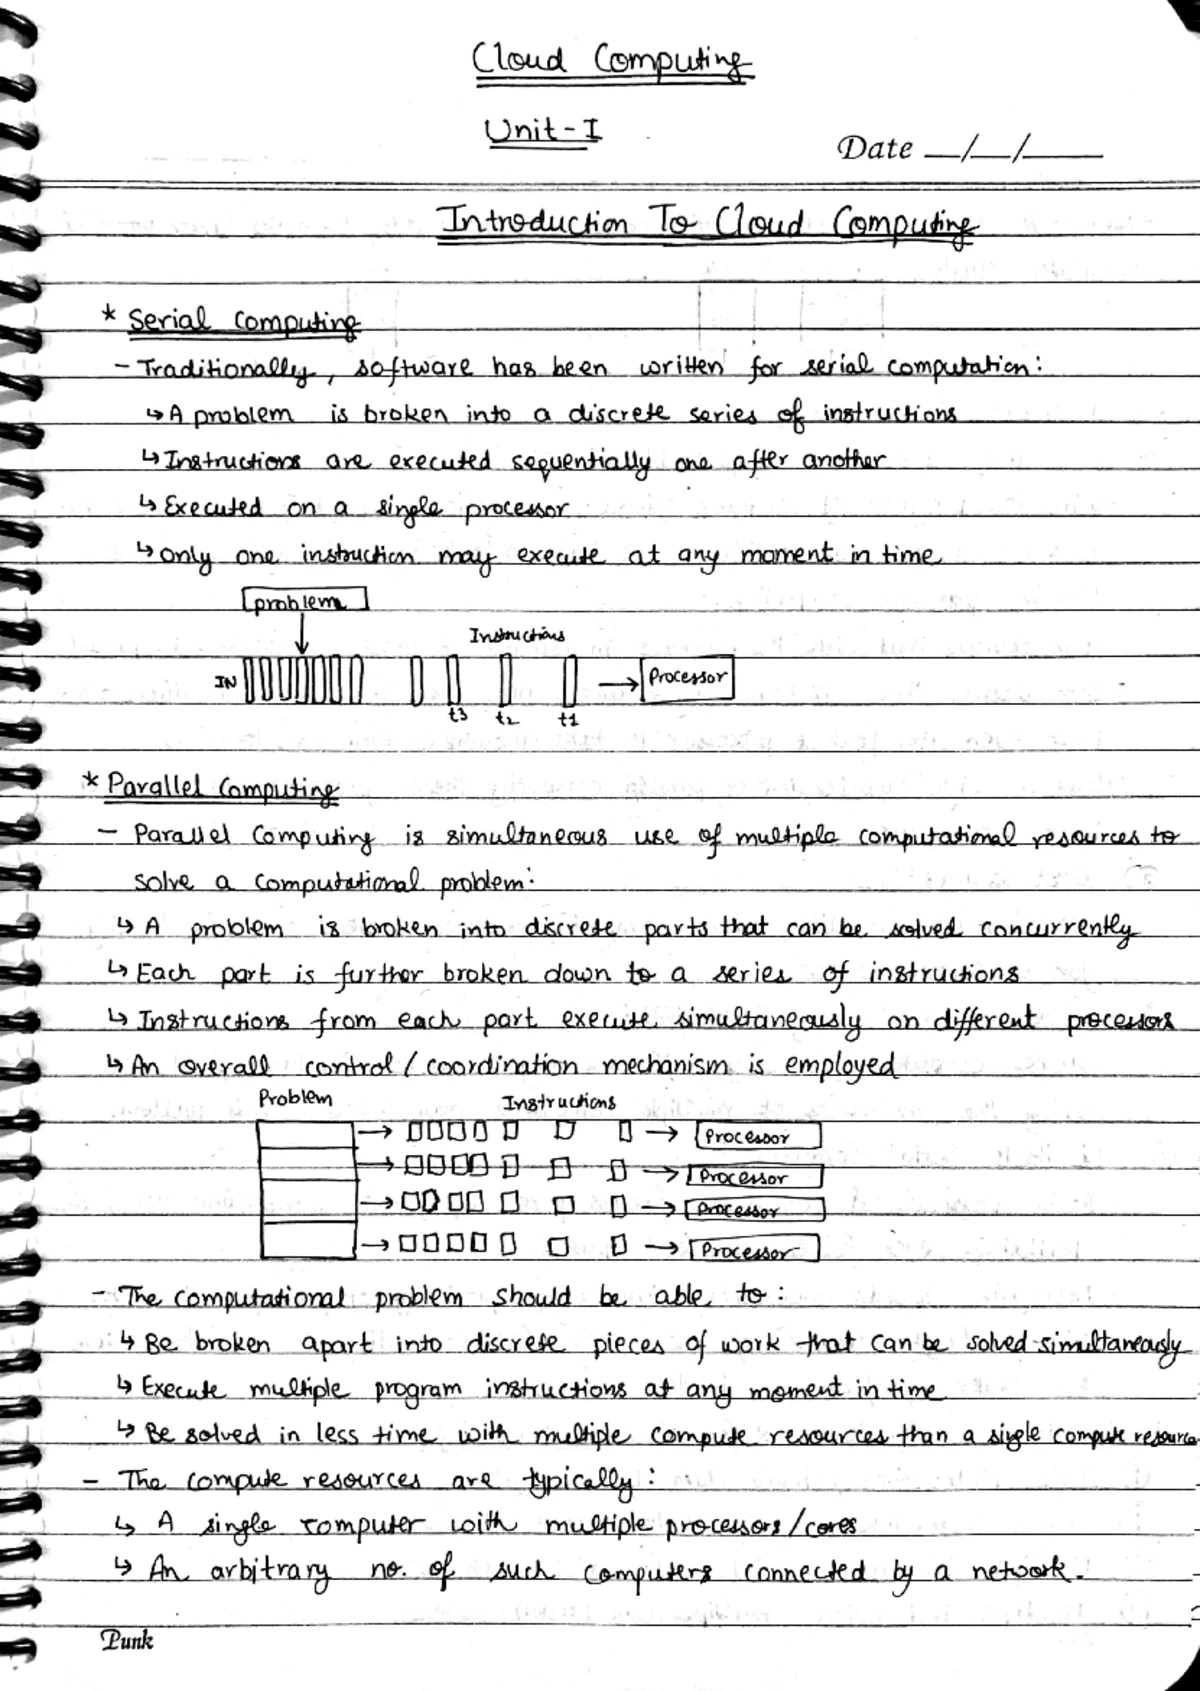 Cloud Computing
Unit-I
Date __/__/____
Introduction To Cloud Computing
* Serial Computing
- Traditionally, software has been written for serial computation:
↳ A problem is broken into a discrete series of instructions
↳ Instructions are executed sequentially one after another
↳ Executed on a single processor
↳ Only one instruction may execute at any moment in time
problem
Instructions
IN
Processor
t3 t2 t1
* Parallel Computing
- Parallel Computing is simultaneous use of multiple computational resources to
solve a computational problem:
↳ A problem is broken into discrete parts that can be solved concurrently
↳ Each part is further broken down to a series of instructions
↳ Instructions from each part execute simultaneously on different processors
↳ An overall control / coordination mechanism is employed
Problem Instructions
Processor
Processor
Processor
Processor
- The computational problem should be able to:
↳ Be broken apart into discrete pieces of work that can be solved simultaneously
↳ Execute multiple program instructions at any moment in time
↳ Be solved in less time with multiple compute resources than a single compute resource
- The compute resources are typically:
↳ A single computer with multiple processors/cores
↳ An arbitrary no. of such computers connected by a network.
Punk